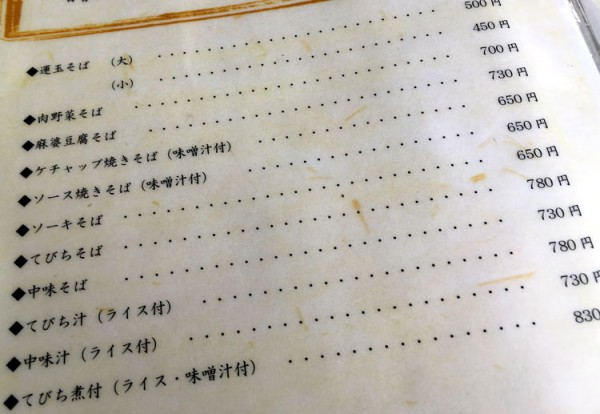 ◆運玉そば (大) 500円
(小) 450円
◆肉野菜そば 700円
◆麻婆豆腐そば 730円
◆ケチャップ焼きそば (味噌汁付) 650円
◆ソース焼きそば (味噌汁付) 650円
◆ソーキそば 650円
◆てびちそば 780円
◆中味そば 730円
◆てびち汁 (ライス付) 780円
◆中味汁 (ライス付) 730円
◆てびち煮付 (ライス・味噌汁付) 830